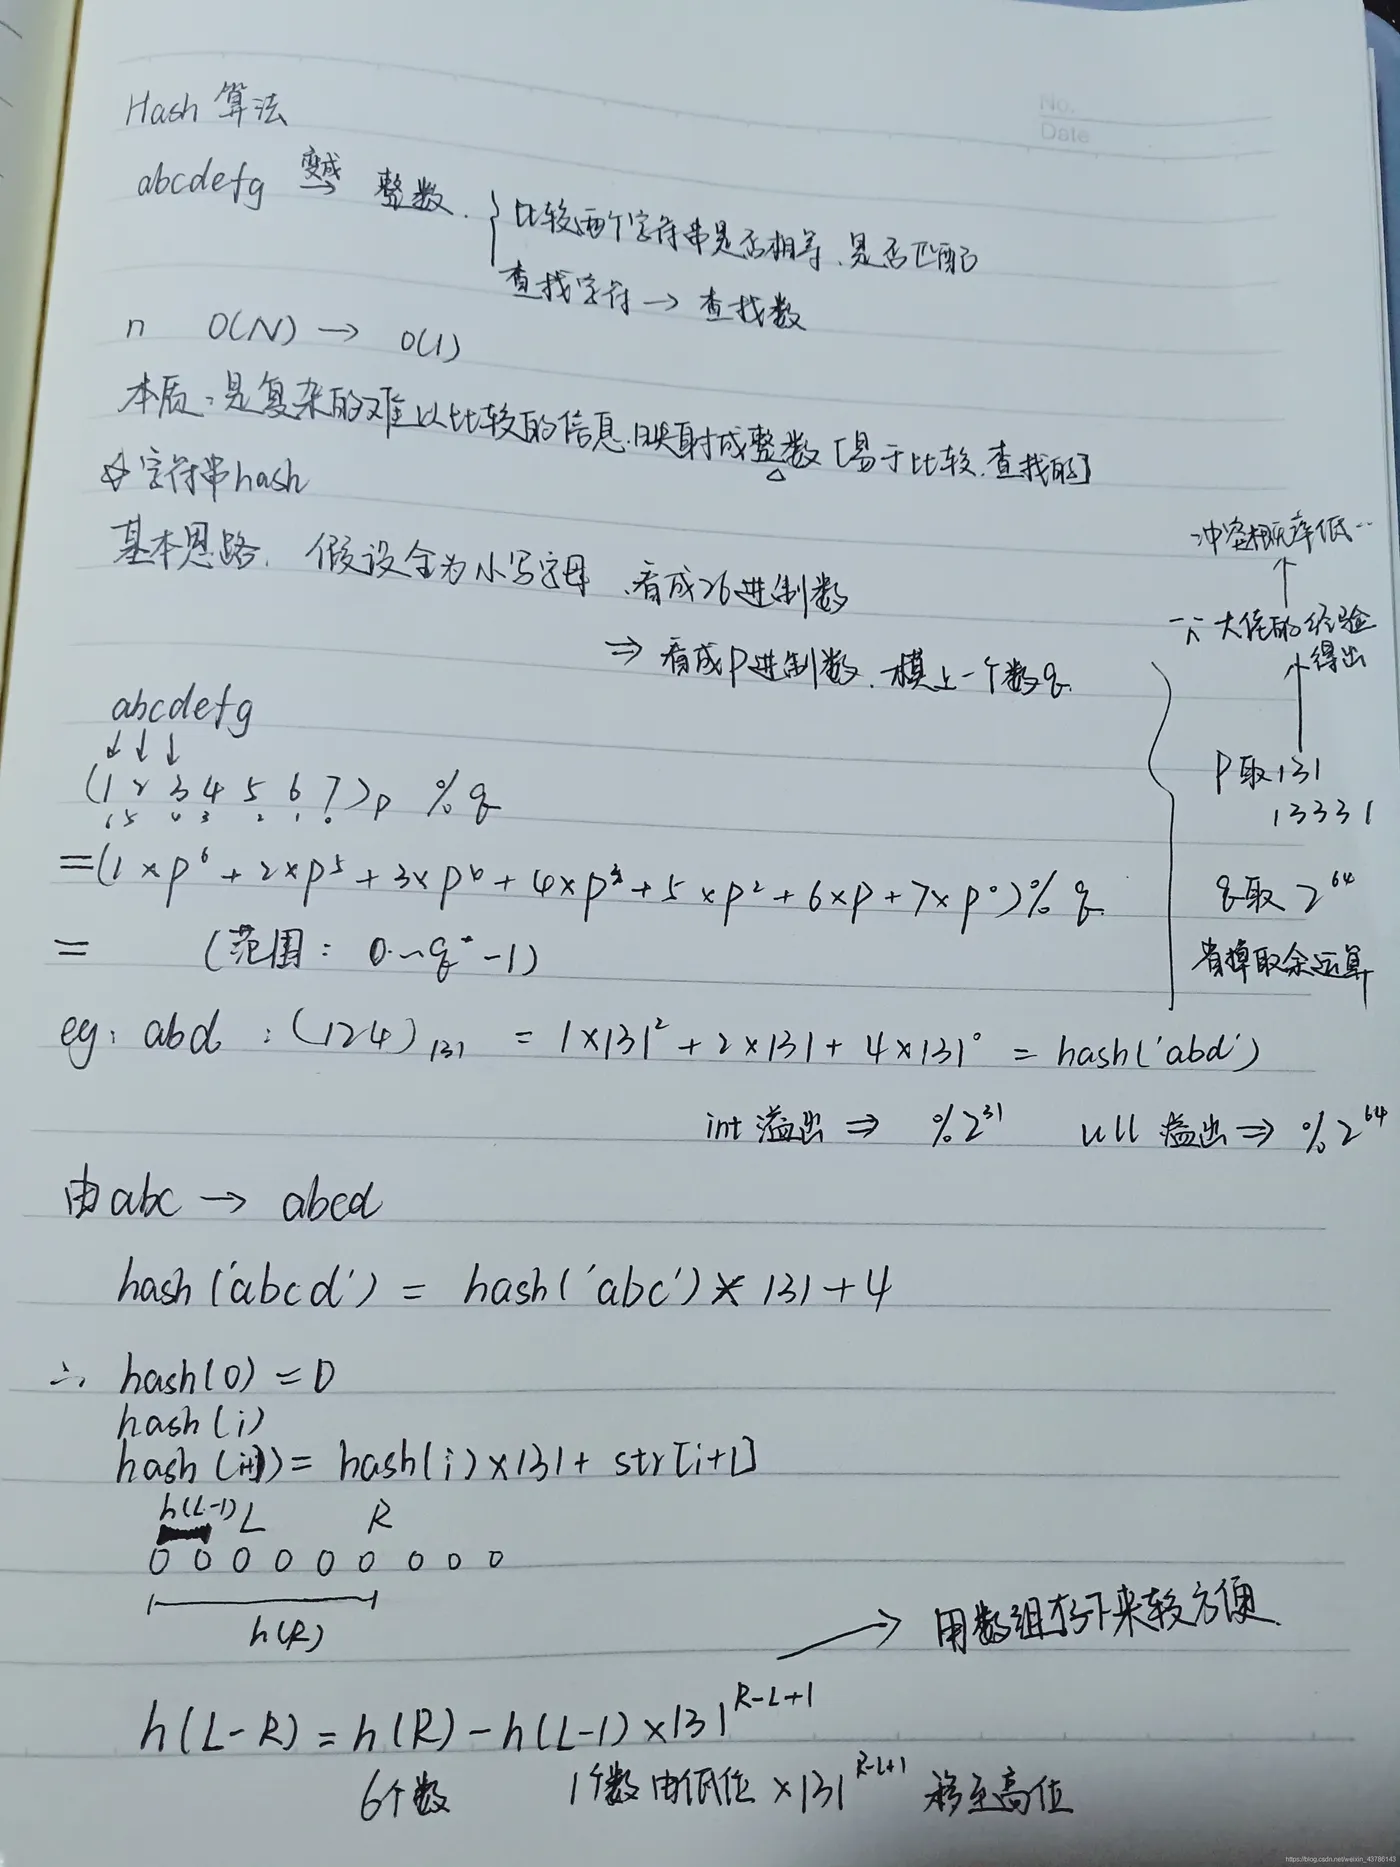 No.
Date
Hash 算法
abcdefg 变成→ 整数. { 比较两个字符串是否相等、是否匹配
查找字符 → 查找数
n O(N) → O(1)
本质:是复杂的难以比较的信息.映射成整数 [易于比较.查找的]
☆ 字符串hash
基本思路. 假设全为小写字母 .看成26进制数
⇒ 看成P进制数. 模上一个数q.
冲突概率低…
↑
大佬的经验
得出
↑
P取131
13331
q取 2^64
省掉取余运算
abcdefg
↓ ↓ ↓
(1 2 3 4 5 6 7)p % q
6 5 4 3 2 1 0
=(1×p^6+2×p^5+3×p^4+4×p^3+5×p^2+6×p+7×p^0)% q
= (范围: 0~q-1)
eg: abd :(124)131 = 1×131^2+2×131+4×131^0 = hash('abd')
int 溢出 ⇒ %2^31 ull 溢出⇒ %2^64
由abc → abcd
hash('abcd') = hash('abc')×131+4
∴ hash(0)=0
hash(i)
hash(i+1)= hash(i)×131+ str[i+1]
h(L-1) L R
0 0 0 0 0 0 0 0 0
h(R)
→ 用数组存下来较方便
h(L-R)=h(R)-h(L-1)×131^R-L+1
6个数 1个数由低位×131^R-L+1 移至高位
https://blog.csdn.net/weixin_43786143